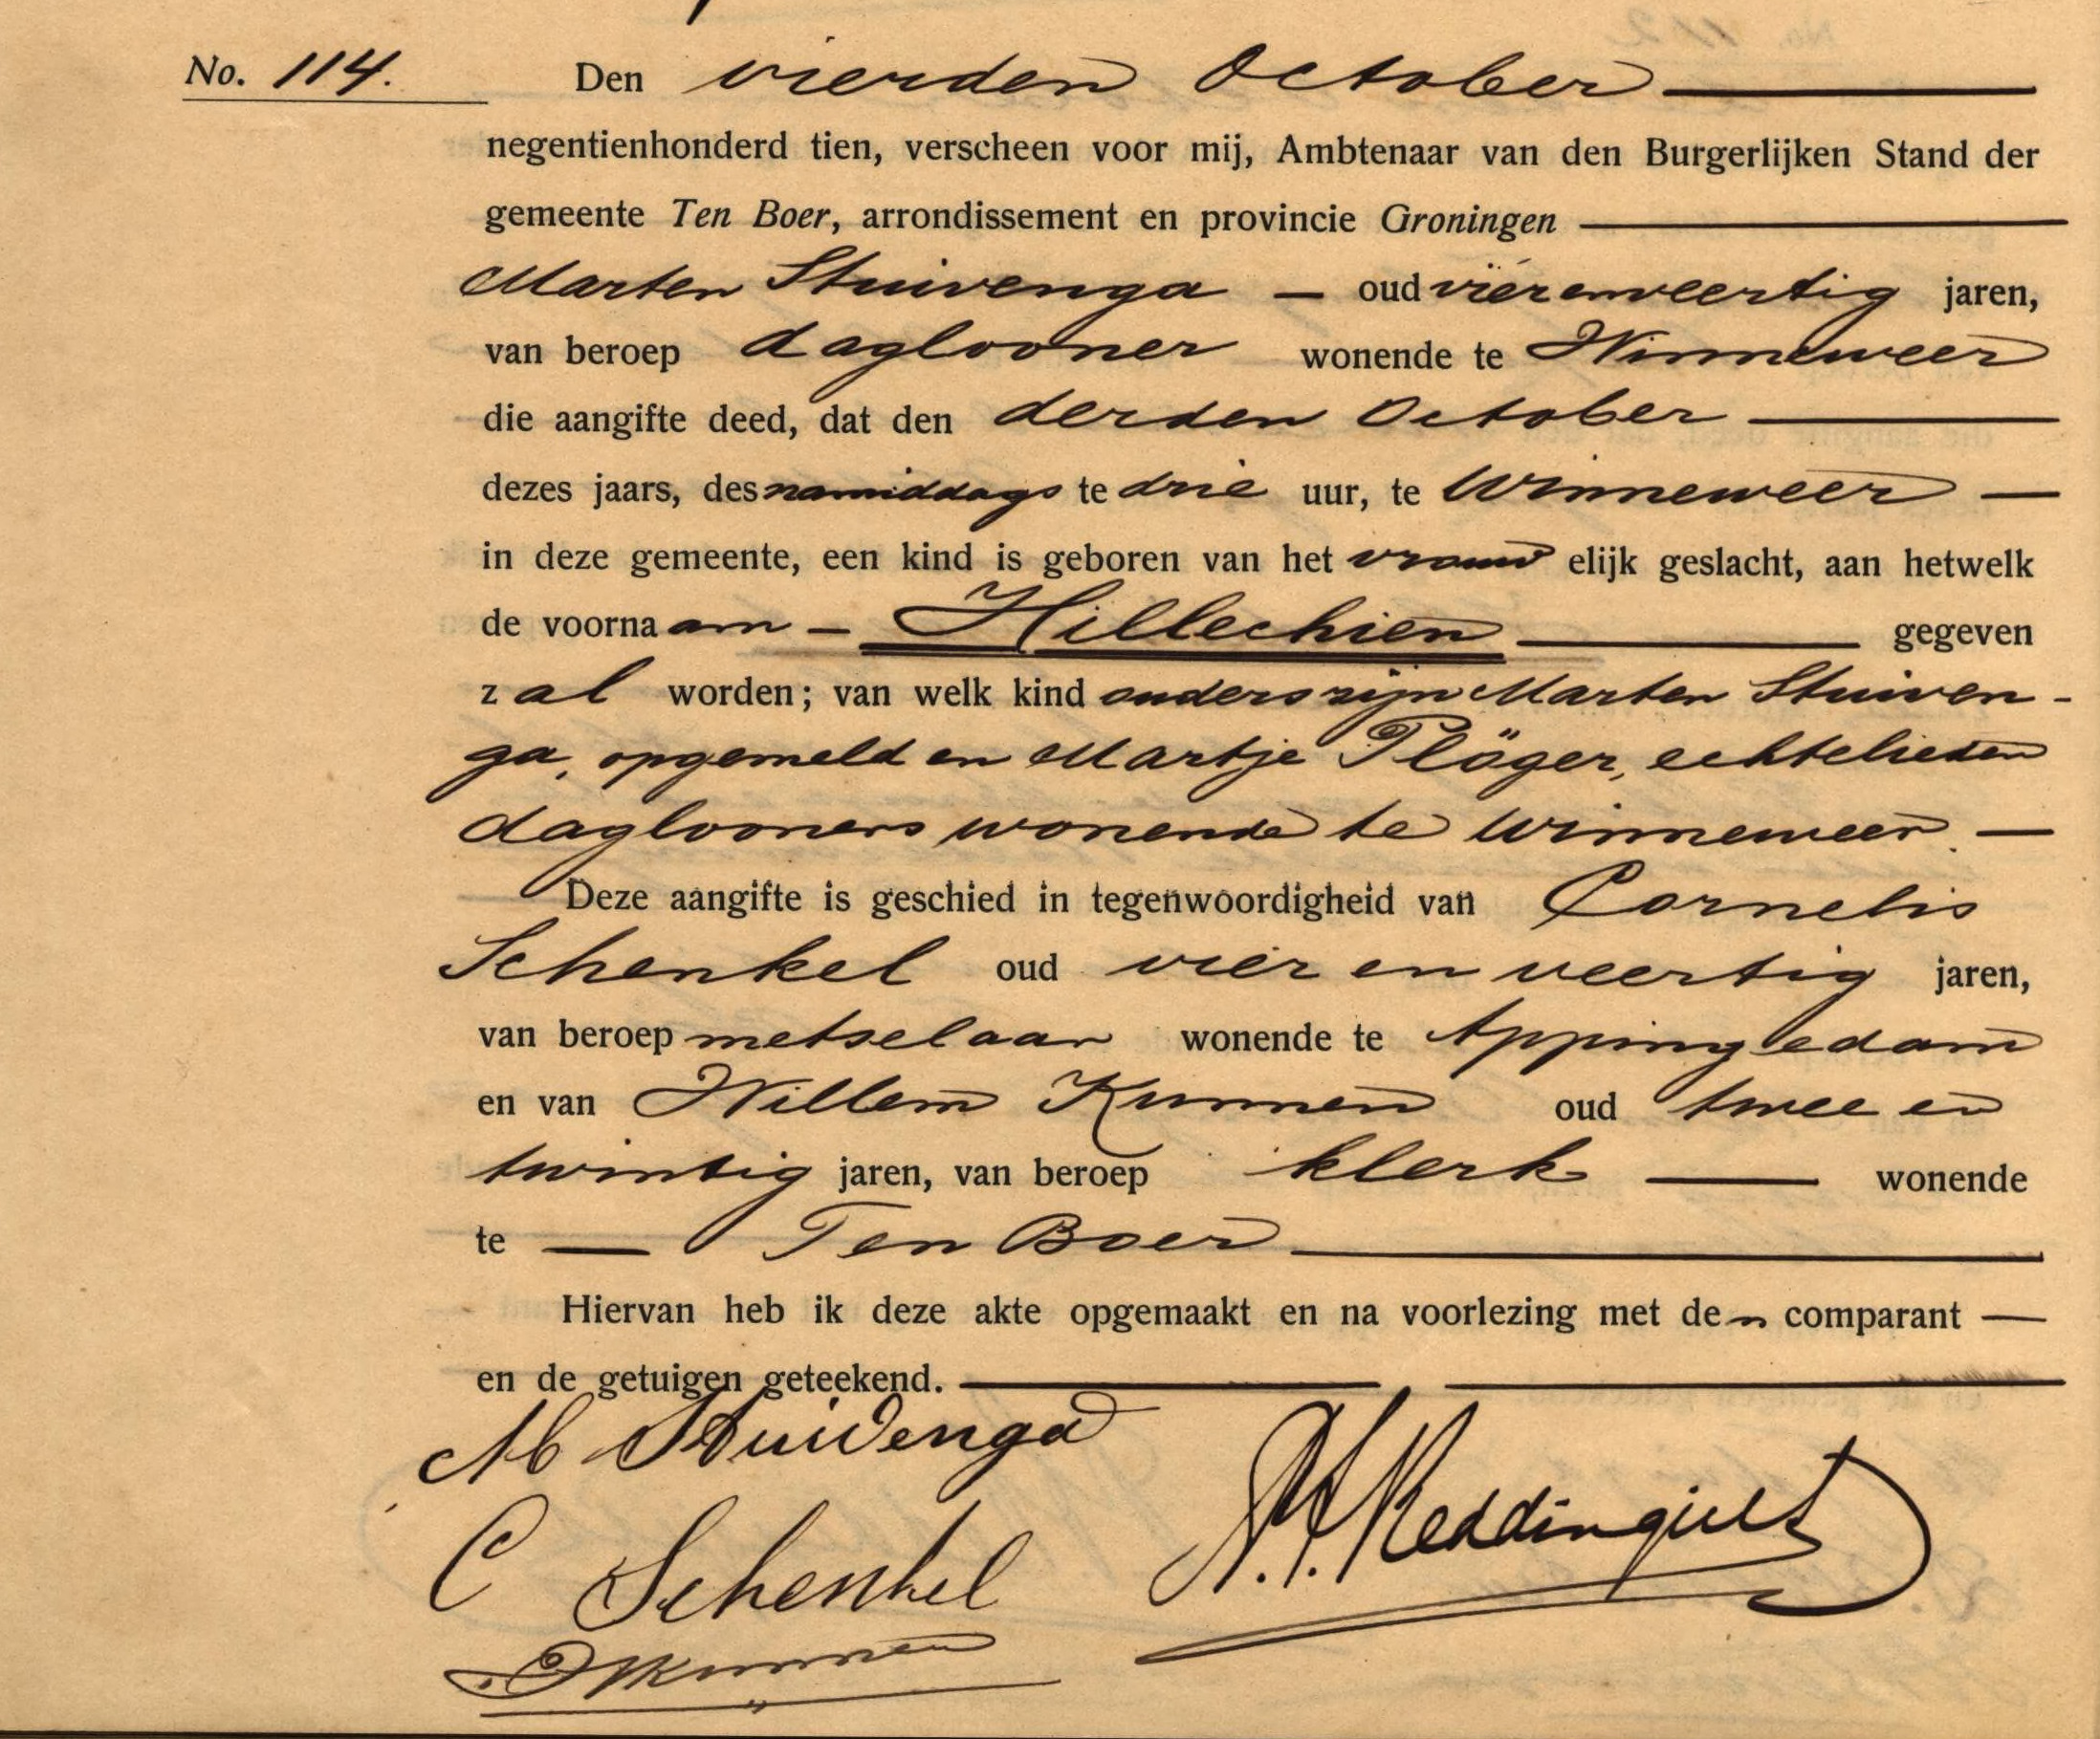 No. 114.
Den vierden October
negentienhonderd tien, verscheen voor mij, Ambtenaar van den Burgerlijken Stand der
gemeente Ten Boer, arrondissement en provincie Groningen
Marten Stuivenga — oud vierenveertig jaren,
van beroep daglooner wonende te Winneweer
die aangifte deed, dat den derden October
dezes jaars, des namiddags te drie uur, te Winneweer —
in deze gemeente, een kind is geboren van het vrouwelijk geslacht, aan hetwelk
de voornaam — Hillechien gegeven
zal worden; van welk kind ouders zijn Marten Stuiven-
ga, opgemeld en Martje Plöger, echtelieden
daglooners wonende te Winneweer. —
Deze aangifte is geschied in tegenwoordigheid van Cornelis
Schenkel oud vier en veertig jaren,
van beroep metselaar wonende te Appingedam
en van Willem Kunnen oud twee en
twintig jaren, van beroep klerk — wonende
te — Ten Boer
Hiervan heb ik deze akte opgemaakt en na voorlezing met den comparant —
en de getuigen geteekend.
M Stuivenga
C Schenkel
WKunnen
Reddingius